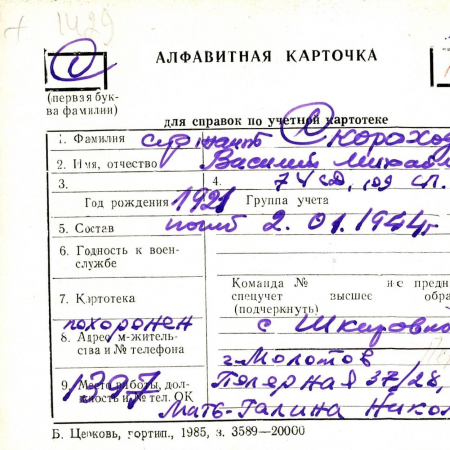 1429
С
АЛФАВИТНАЯ КАРТОЧКА
(первая бук-
ва фамилии)
для справок по учетной картотеке
1. Фамилия сержант Скороход
2. Имя, отчество Василий Михайл
3. 4. 74 сд, 109 сп.
Год рождения 1921 Группа учета
5. Состав погиб 2.01.1944г
6. Годность к воен-
службе
Команда № и с предн
7. Картотека спецучет высшее обра
(подчеркнуть)
похоронен с Шкаровка
8. Адрес м-житель-
ства и № телефона г. Молотов
9. Место работы, дол- Полярная 37/28,
жность и № тел. ОК 1397
Мать-Галина Никол
Б. Церковь, гортип., 1985, з. 3589—20000